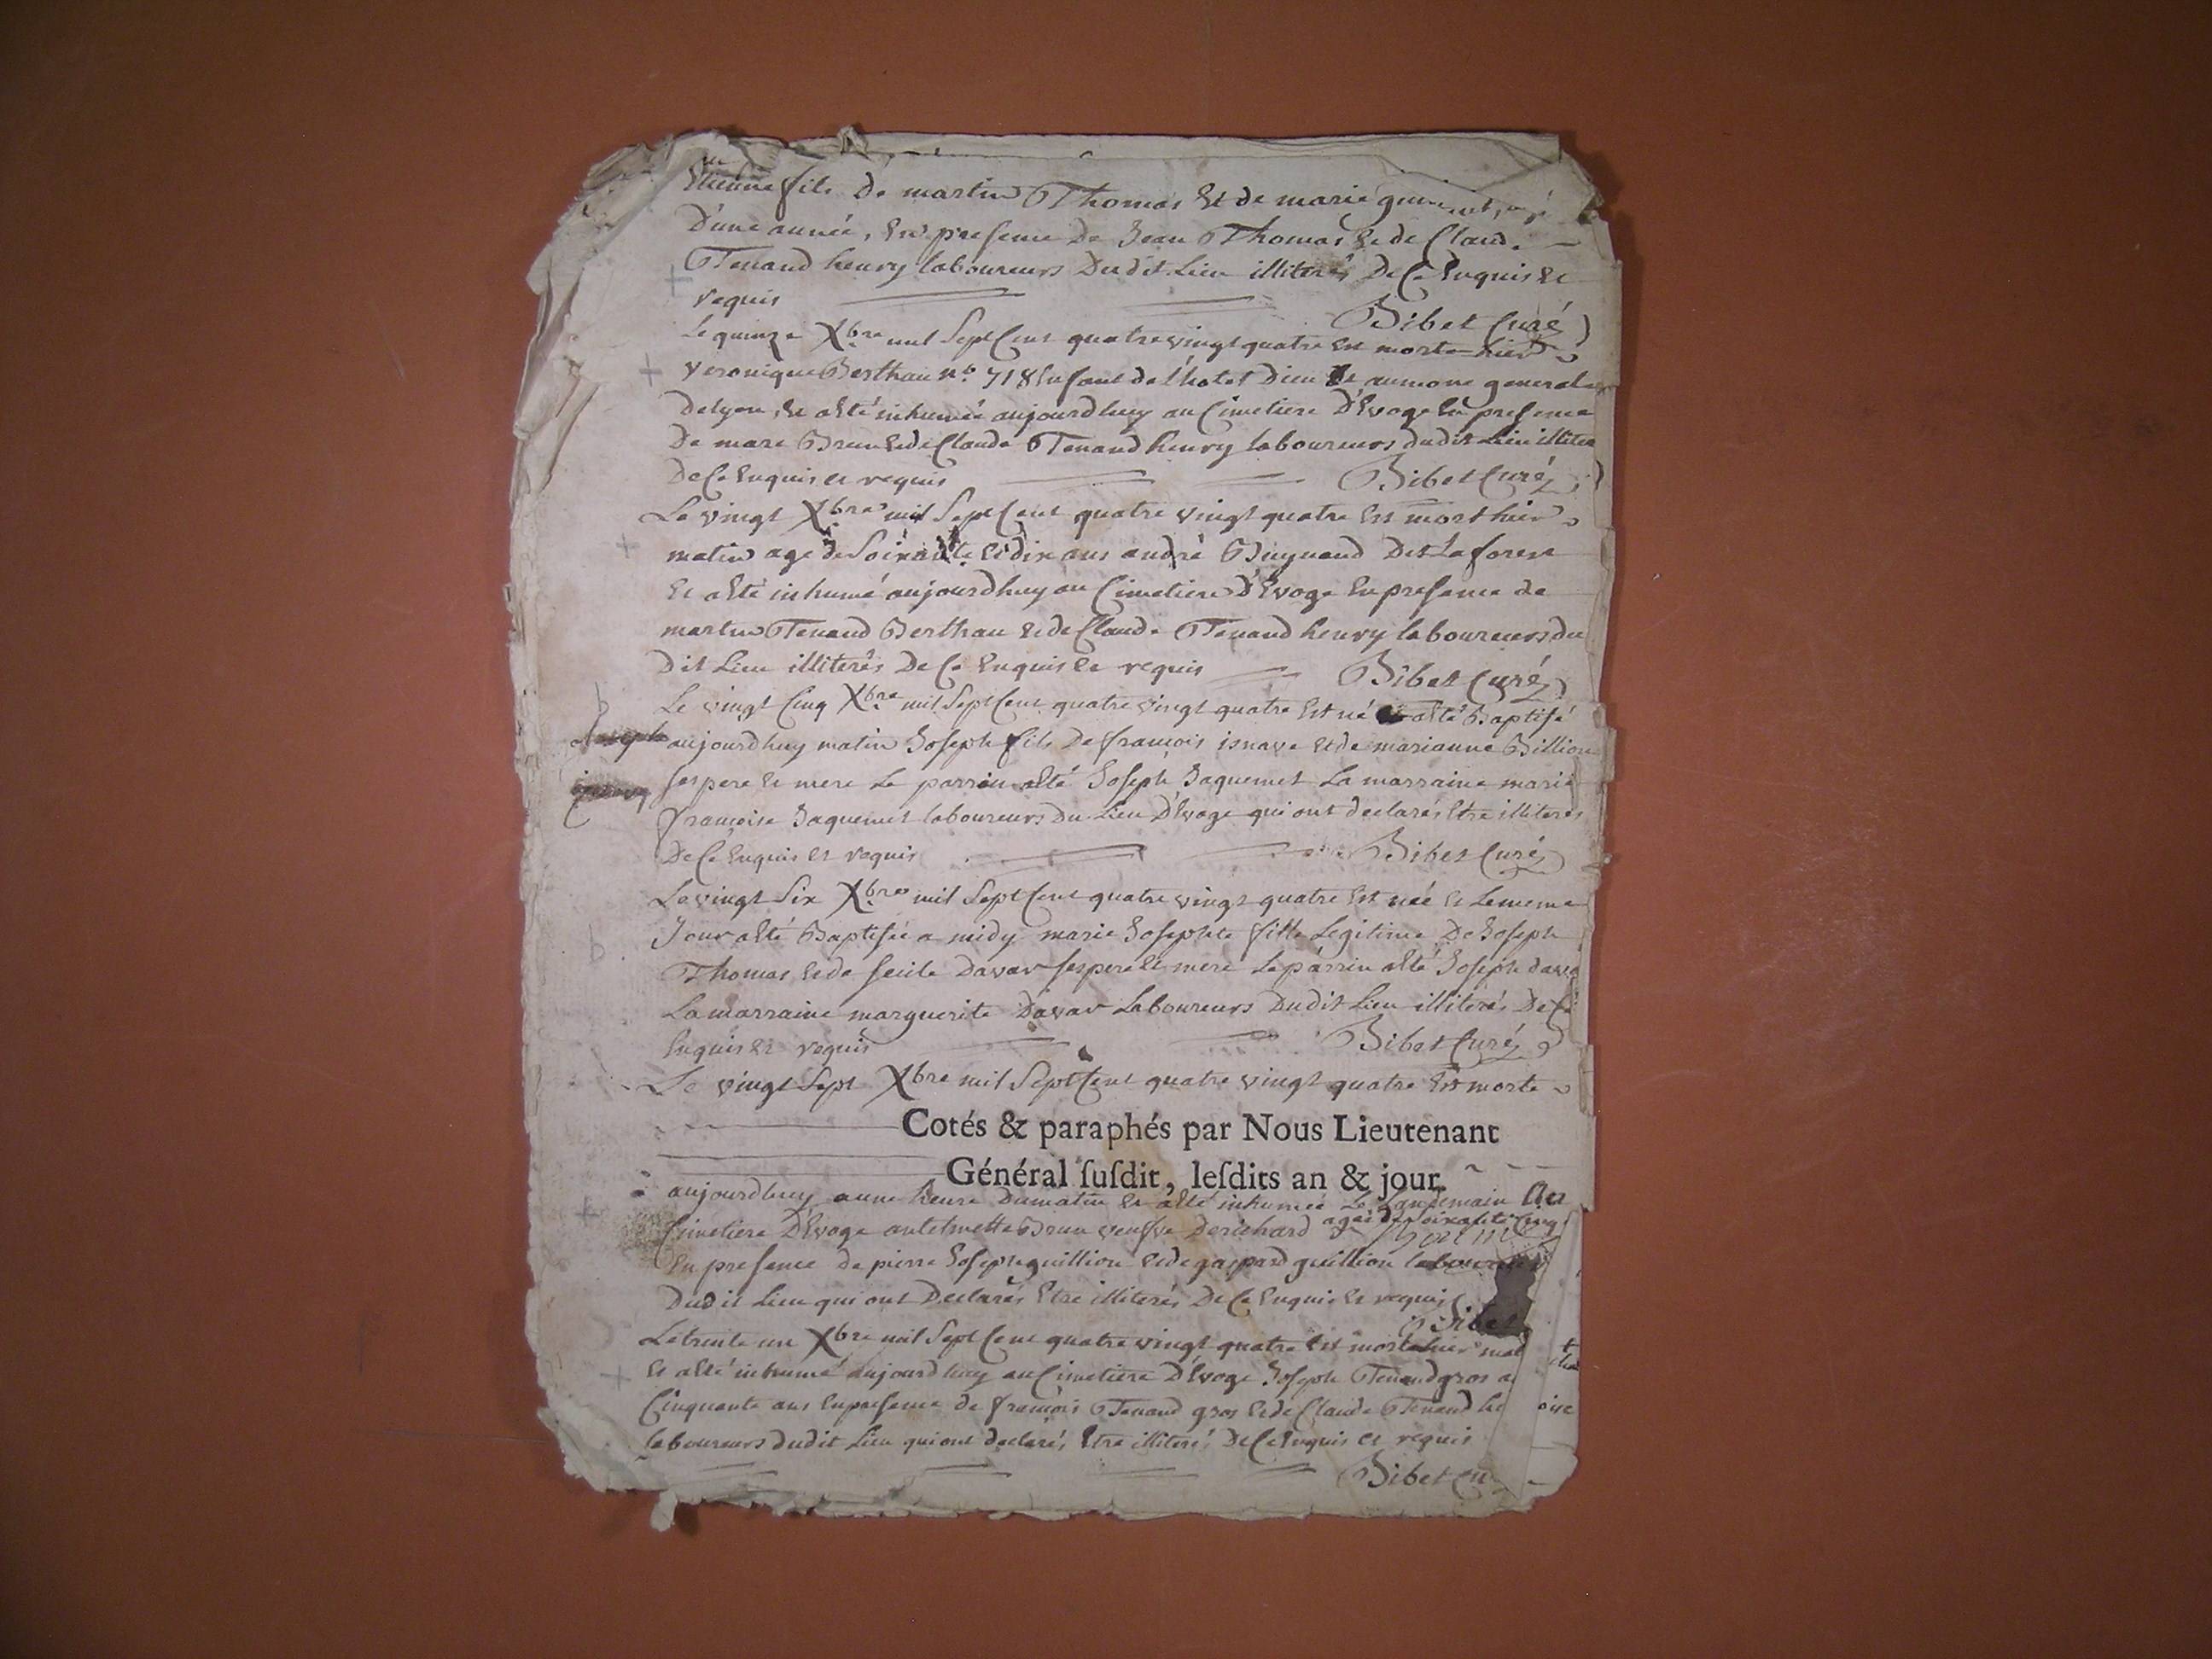 Etienne fils De martin Thomas Et de marie
D'une année, En presence De Jean Thomas Et de Claude
Tenand henry laboureurs Dudit Lieu illiterés De Ce Enquis Et
requis
Bibet Curé
Le quinze Xbre mil Sept Cent quatre vingt quatre Est morte hier
veronique Berthau no. 718 Enfant de l'hotel Dieu Et aumone generale
De lyon, Et a Eté inhumée aujourdhuy au Cimetiere D'Evoge En presence
De marc Brun Et de Claude Tenand henry laboureurs dudit Lieu illiter
De Ce Enquis et requis Bibet Curé
Le vingt Xbre mil Sept Cent quatre vingt quatre Est mort hier
matin agé de Soixante Et dix ans andré Buynand Dit Laforest
Et a Eté inhumé aujourdhuy au Cimetiere D'Evoge En presence de
martin Tenand Berthau Et de Claude Tenand henry laboureurs du
Dit Lieu illiterés De Ce Enquis Et requis Bibet Curé
b
Le vingt Cinq Xbre mil Sept Cent quatre vingt quatre Est né Et a Eté Baptisé
Joseph aujourdhuy matin Joseph fils De francois isnave Et de marianne Billion
ses pere Et mere Le parrin a Eté Joseph Jaquemet La marraine marie
francoise Jaquemet laboureurs Du Lieu D'Evoge qui ont declarés Etre illiterés
De Ce Enquis et requis Bibet Curé
Le vingt Six Xbre mil Sept Cent quatre vingt quatre Est née Et Le meme
b Jour a Eté Baptisée a midy marie Josephte fille Legitime De Joseph
Thomas Et de secile Davar ses pere Et mere Le parrin a Eté Joseph
La marraine marguerite Davar Laboureurs Dudit Lieu illiterés De Ce
Enquis Et requis Bibet Curé
Le vingt Sept Xbre mil Sept Cent quatre vingt quatre Est morte
Cotés & paraphés par Nous Lieutenant
Général ſuſdit, leſdits an & jour.
aujourdhuy a une heure Du matin Et a Eté inhumée Le Landemain Au
agée de Soixante Cinq
Cimetiere D'Evoge antelmette Brun veufve De richard
En presence de pierre Joseph guillion Et de gaspard guillion laboureurs
Dudit Lieu qui ont Declarés Etre illiterés De Ce Enquis Et requis
Bibet
Le trente un Xbre mil Sept Cent quatre vingt quatre Est mort hier mat
Et a Eté inhumé aujourdhuy au Cimetiere D'Evoge Joseph Tenand gros a
Cinquante ans En presence de francois Tenand gros Et de Claude Tenand he
laboureurs dudit Lieu qui ont declarés Etre illiterés De Ce Enquis et requis
Bibet Cu